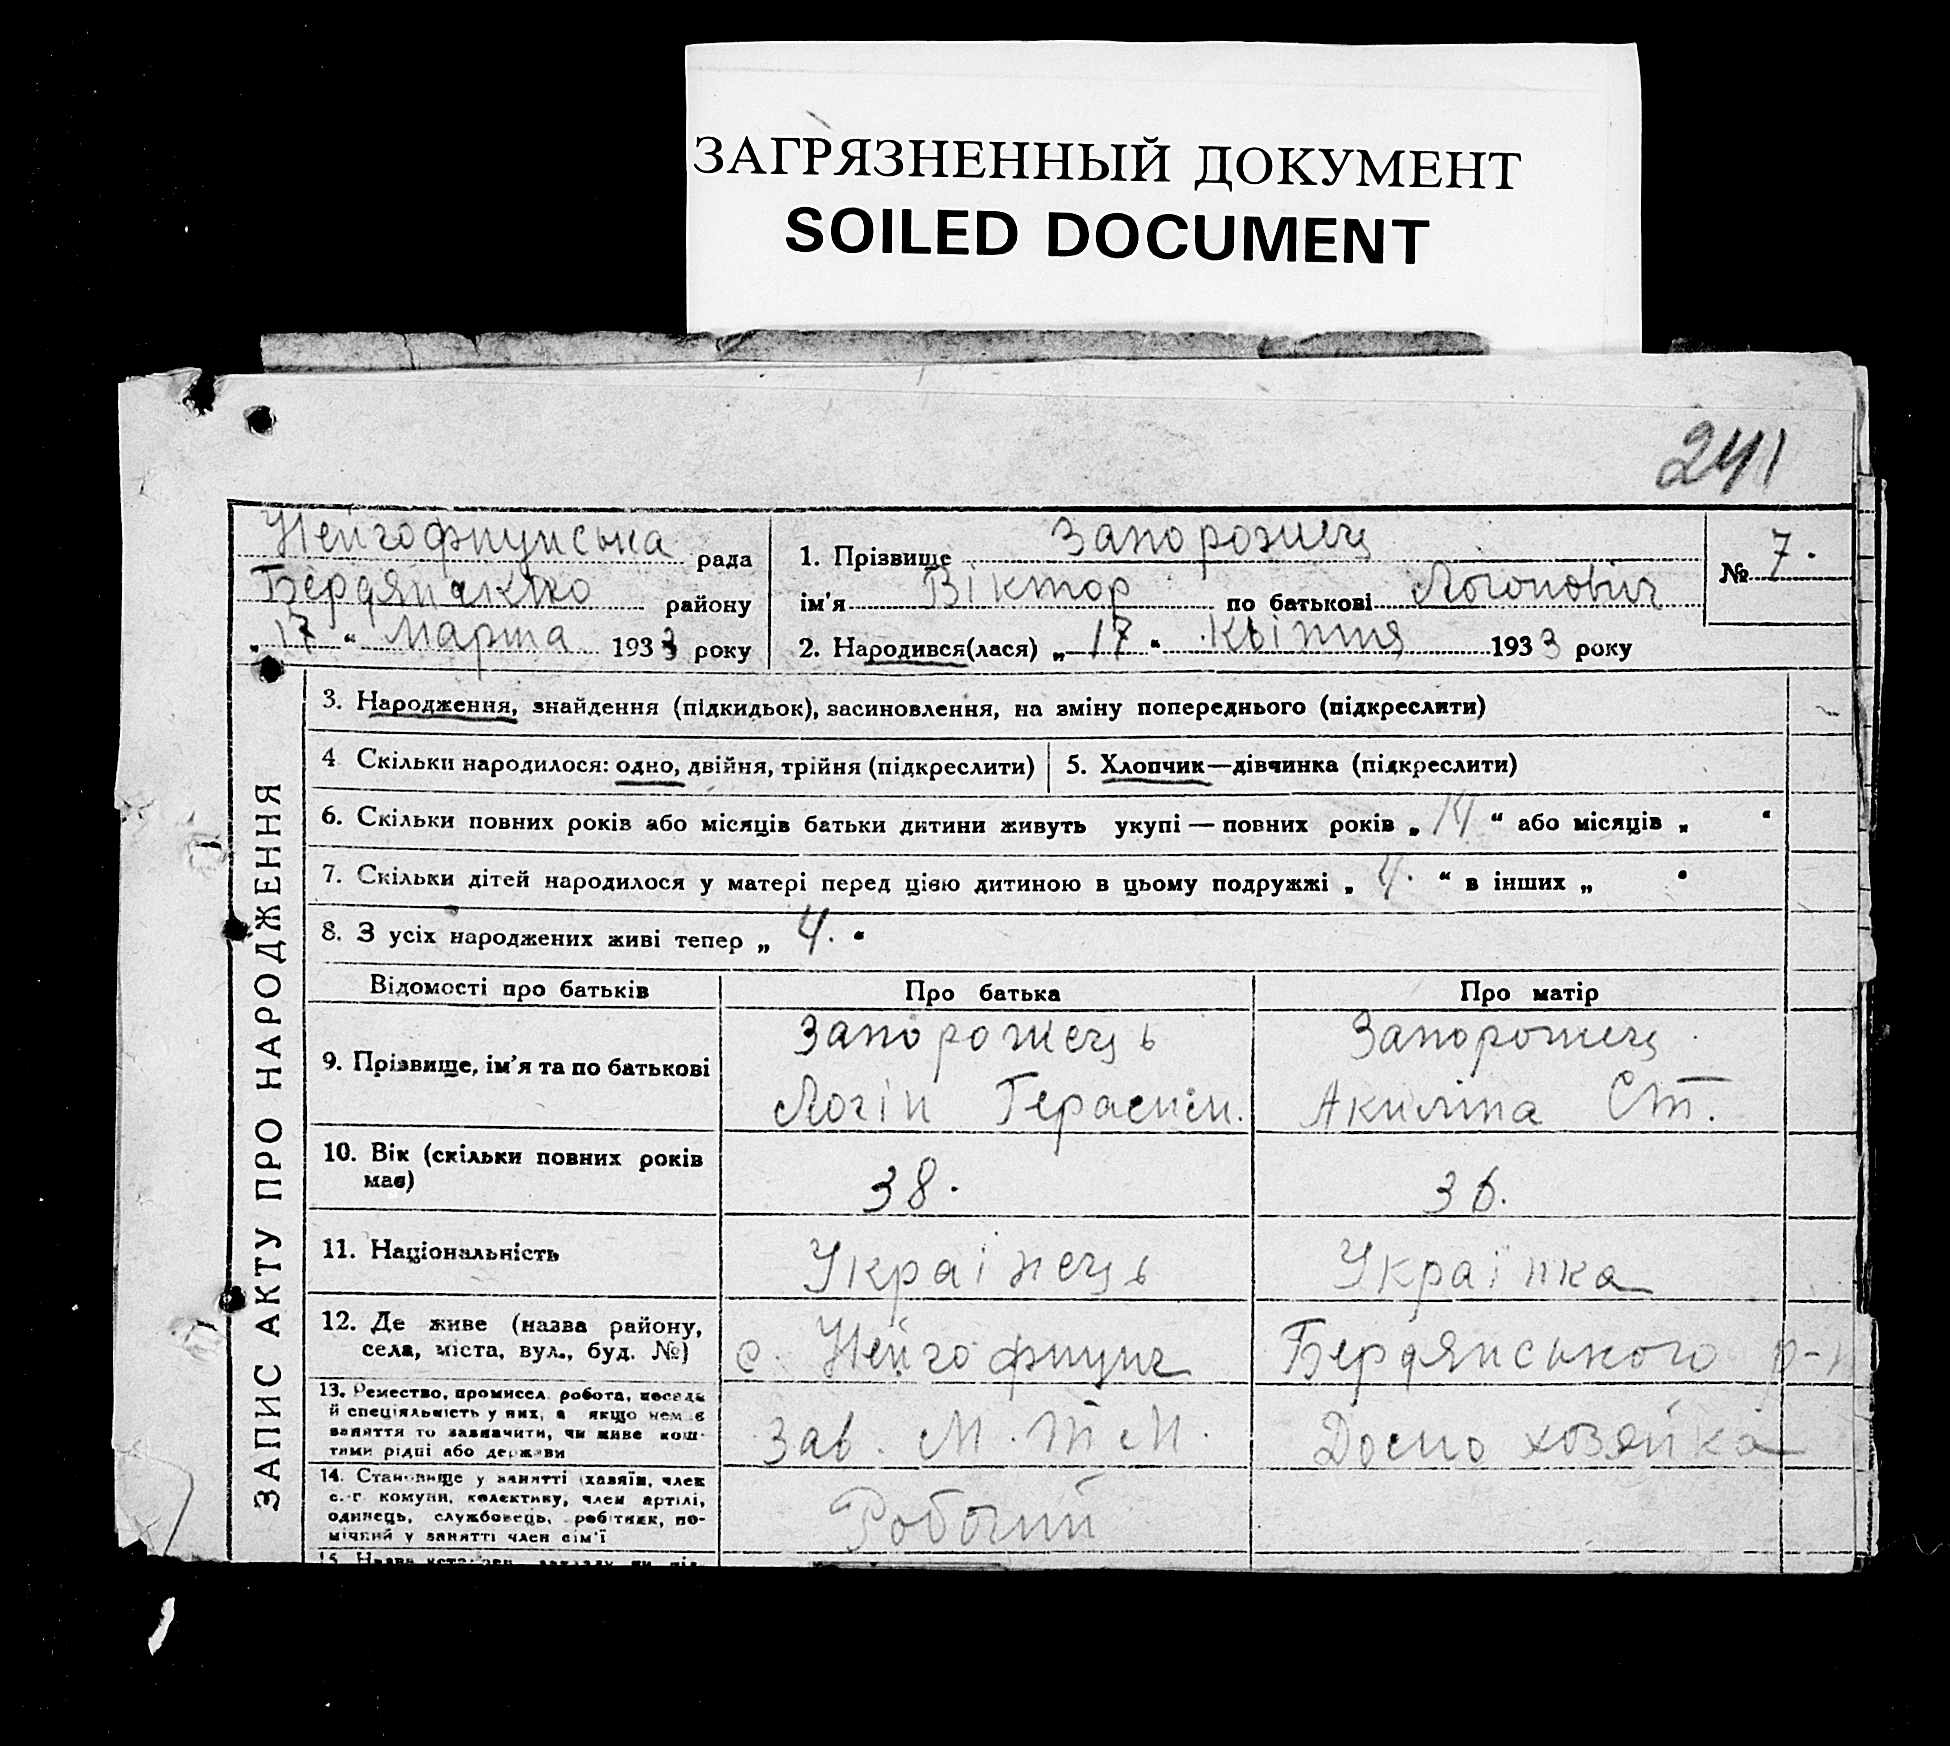 ЗАГРЯЗНЕННЫЙ ДОКУМЕНТ
SOILED DOCUMENT
241
Нейгофнунська рада
Бердянською району
„ 17 “ Марта 1933 року
1. Прізвище Запорожец
ім'я Віктор по батькові Логонович
2. Народився(лася) „ 17 “ Квітня 1933 року
№ 7.
ЗАПИС АКТУ ПРО НАРОДЖЕННЯ
3. Народження, знайдення (підкидьок), засиновлення, на зміну попереднього (підкреслити)
4 Скільки народилося: одно, двійня, трійня (підкреслити)
5. Хлопчик—дівчинка (підкреслити)
6. Скільки повних років або місяців батьки дитини живуть укупі — повних років „ 14 “ або місяців „ “
7. Скільки дітей народилося у матері перед цією дитиною в цьому подружжі „ 4. “ в інших „ “
8. З усіх народжених живі тепер „ 4. “
Відомості про батьків Про батька Про матір
9. Прізвище, ім'я та по батькові
Запорожець
Логін Герасим.
Запорожец
Акиліна Ст.
10. Вік (скільки повних років
має)
38.
36.
11. Національність
Українець
Українка
12. Де живе (назва району,
села, міста, вул., буд. №)
с. Нейгофнунг Бердянського р-н
13. Ремество, промисел, робота, посада
й спеціяльність у них, а якщо немає
заняття то зазначити, чи живе кош-
тами рідні або держави
Зав. М.Т.М.
Домохозяйка
14. Становище у занятті (хазяїн, член
с.-г. комуни, колективу, член артілі,
одинець, службовець, робітник, по-
мічний у занятті член сім'ї
Робочий
15. Назва